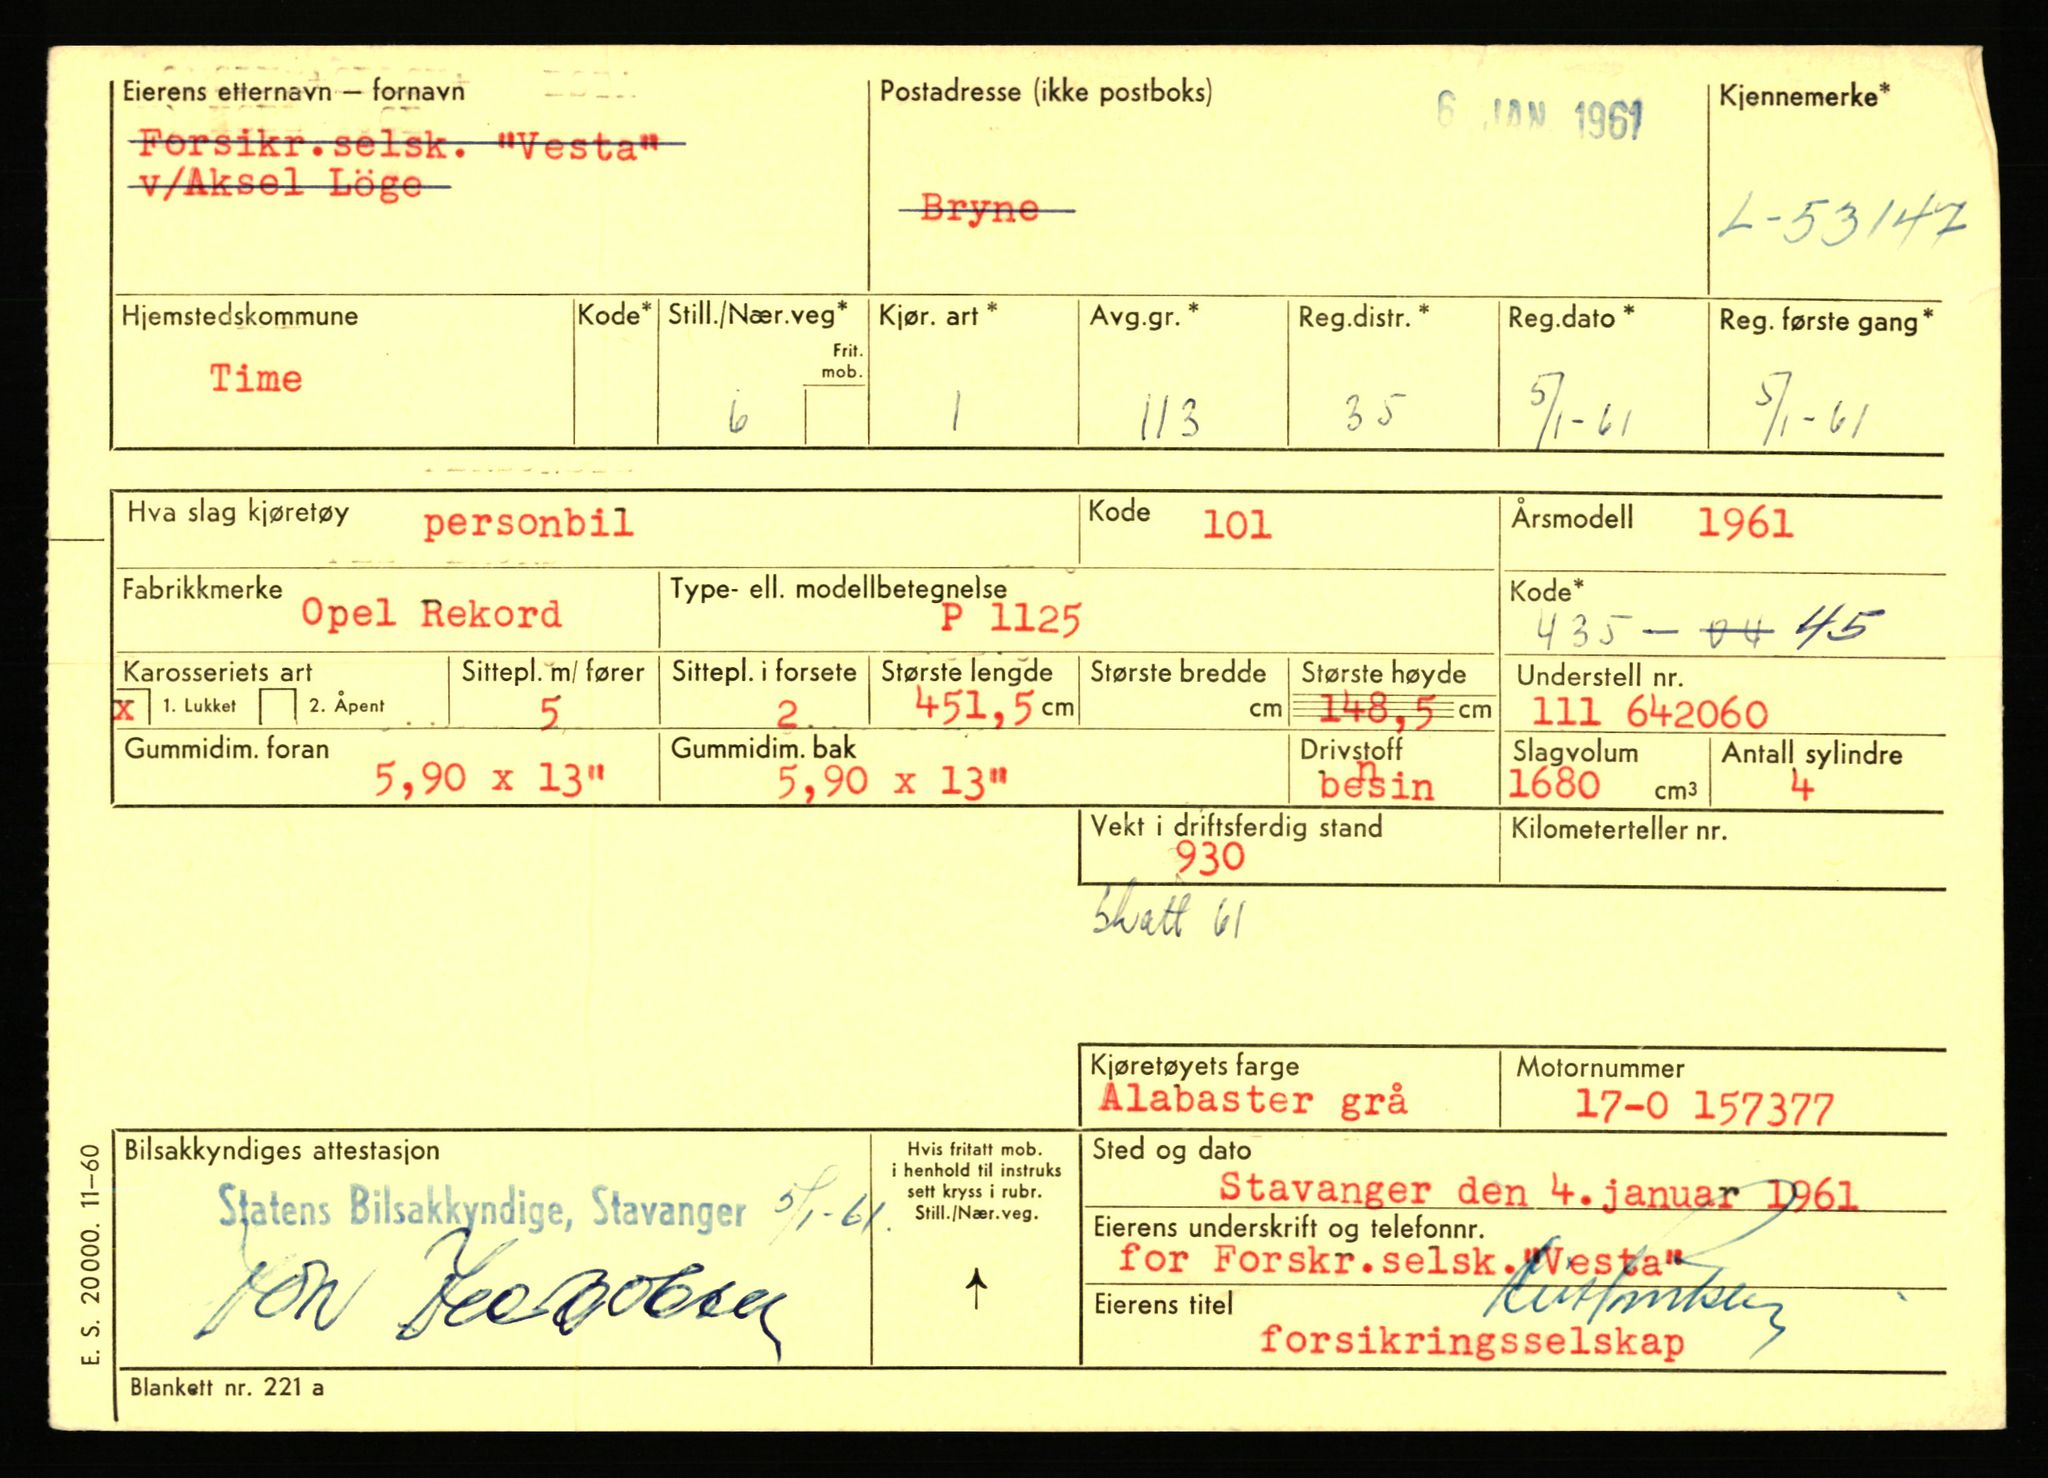 Eierens etternavn – fornavn
Forsikr.selsk. "Vesta"
v/Aksel Löge
Postadresse (ikke postboks)
6 JAN 1961
Bryne
Kjennemerke*
L-53147
Hjemstedskommune
Time
Kode*
Still./Nær.veg*
Frit.
mob.
6
Kjør. art *
1
Avg.gr. *
113
Reg.distr. *
35
Reg.dato *
5/1-61
Reg. første gang*
5/1-61
Hva slag kjøretøy personbil
Kode 101
Årsmodell 1961
Fabrikkmerke
Opel Rekord
Type- ell. modellbetegnelse
P 1125
Kode*
435 – 04 45
Karosseriets art
x 1. Lukket 2. Åpent
Sittepl. m/ fører
5
Sittepl. i forsete
2
Største lengde
451,5 cm
Største bredde
cm
Største høyde
148,5 cm
Understell nr.
111 642060
Gummidim. foran
5,90 x 13"
Gummidim. bak
5,90 x 13"
Drivstoff
bensin
Slagvolum
1680 cm³
Antall sylindre
4
Vekt i driftsferdig stand
930
Kilometerteller nr.
Skatt 61
Kjøretøyets farge
Alabaster grå
Motornummer
17-0 157377
Bilsakkyndiges attestasjon
Statens Bilsakkyndige, Stavanger 5/1-61.
Hvis fritatt mob.
i henhold til instruks
sett kryss i rubr.
Still./Nær.veg.
Sted og dato
Stavanger den 4.januar 1961
Eierens underskrift og telefonnr.
for Forskr.selsk."Vesta"
Eierens titel
forsikringsselskap
Blankett nr. 221 a
E. S. 20000. 11–60